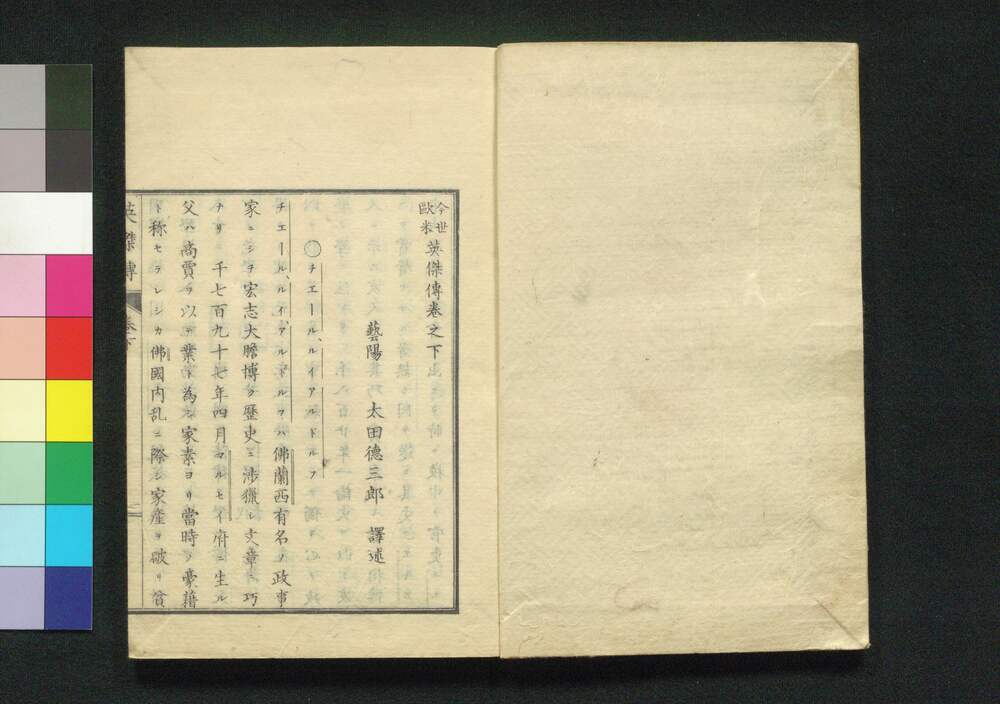 今世歐米英傑傳卷之下
藝陽 太田德三郎 譯述
○チエール、ルイアルドルフ
チエール、ルイアルドルフハ佛蘭西有名ノ政事
家ニシテ宏志大膽博ク歷史ニ渉獵シ文章ニ巧
ナリ千七百九十七年四月マルセイ府ニ生ル
父ハ商賈ヲ以テ業ト為シ家素ヨリ當時ノ豪
ト称セラレシカ佛國内乱ニ際シ家産ヲ破リ貧
英傑傳 卷之下